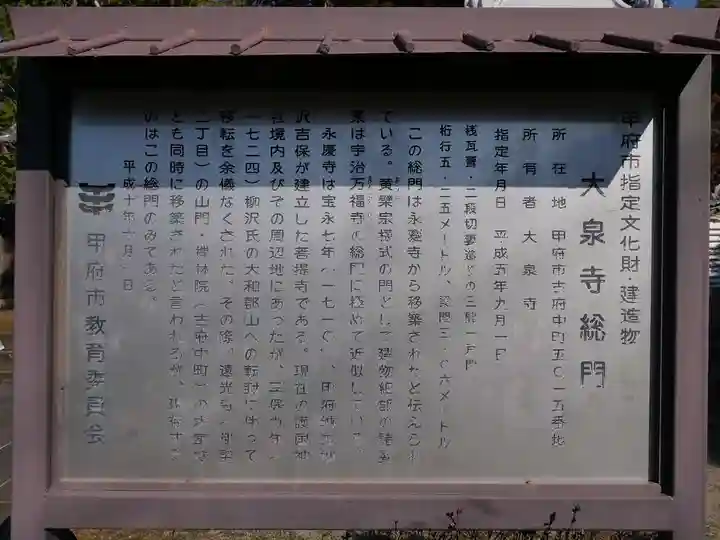 甲府市指定文化財・建造物
大泉寺総門
所在地 甲府市古府中町五〇一五番地
所有者 大泉寺
指定年月日 平成五年九月一日
桟瓦葺・二段切妻造りの三間一戸門
桁行五・二五メートル、梁間三・〇六メートル
この総門は永慶寺から移築されたと伝えられ
ている。黄檗宗様式の門として建物細部の諸要
素は宇治万福寺の総門に極めて近似している。
永慶寺は宝永七年(一七一〇)、甲府城主柳
沢吉保が建立した菩提寺である。現在の護国神
社境内及びその周辺地にあったが、享保九年(
一七二四)柳沢氏の大和郡山への転封に伴って
移転を余儀なくされた。その際、遠光寺(
二丁目)の山門・
とも同時に移築されたと言われるが、現存する
のはこの総門のみである。
平成十年
甲府市教育委員会